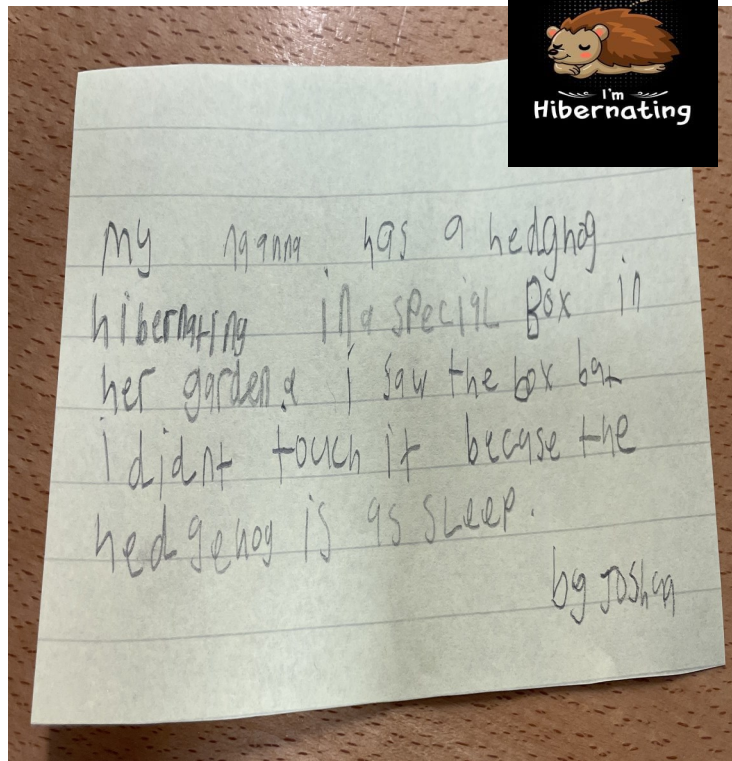 I'm
Hibernating
my nganna has a hedghog
hibernating in a special Box in
her garden. i saw the box but
i didnt touch it becuse the
hedgehog is as sleep.
by Joshua